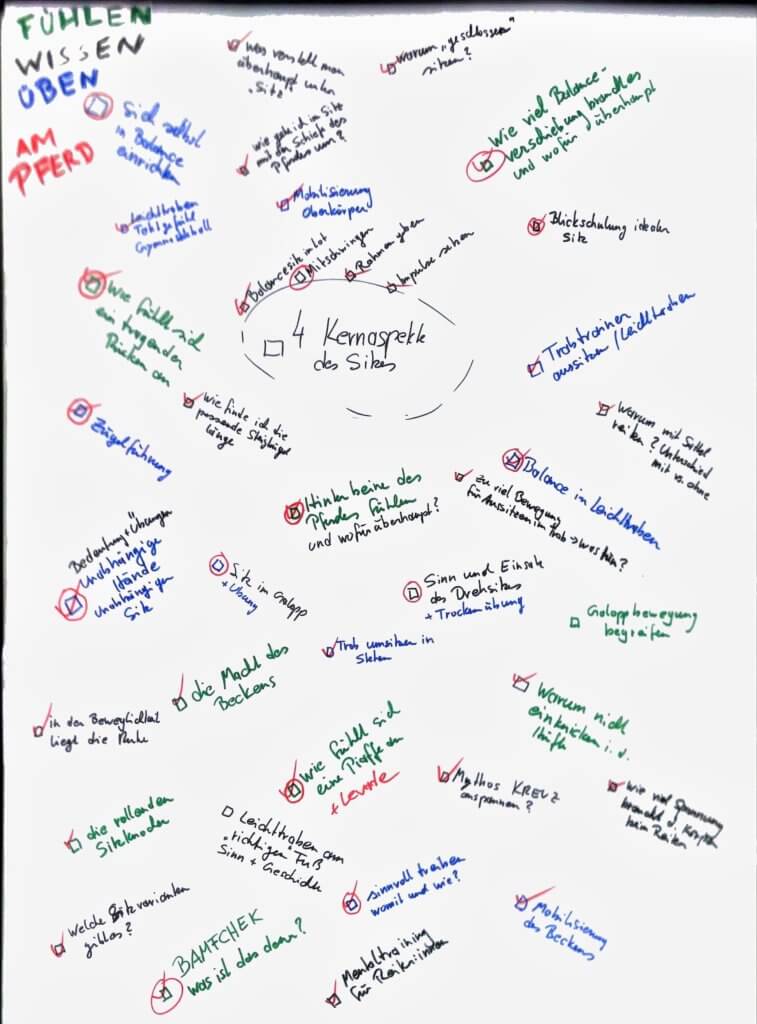 FÜHLEN
WISSEN
ÜBEN
AM
PFERD
was versteht man
überhaupt unter
"Sitz"
warum "geschlossen"
sitzen?
sich selbst
in Balance
einrichten
wie gehe ich im Sitz
mit der Schiefe des
Pferdes um?
Wie viel Balance-
verschiebung braucht es
und wofür überhaupt
Mobilisierung
Oberkörper
Leichttraben
Taktgefühl
Gymnastikball
Blickschulung idealer
Sitz
Balancesitz im Lot
Mitschwingen
Rahmen geben
Impulse setzen
4 Kernaspekte
des Sitzes
Wie fühlt sich
ein tragender
Rücken an
Trabtrainen
aussitzen / Leichttraben
wie finde ich die
passende Steigbügel
länge
Zügelführung
Warum mit Sattel
reiten? Unterschied
mit vs. ohne
Balance im Leichttraben
zu viel Bewegung
für Aussitzen im Trab → was tun?
Hinterbeine des
Pferdes fühlen
und wofür überhaupt?
Bedeutung + Übungen
Unabhängige
Hände
unabhängigen
Sitz
Sitz im Galopp
+ Übung
Sinn und Einsatz
des Drehsitzes
+ Trockenübung
Galoppbewegung
begreifen
Trab umsitzen in
Stehen
die Macht des
Beckens
Warum nicht
einknicken i. d.
Hüfte
in der Beweglichkeit
liegt die Ruhe
wie fühlt sich
eine Piaffe an
+ Levade
Mythos KREUZ
anspannen?
wie viel Spannung
braucht d. Körper
beim Reiten
die rollenden
Sitzknochen
Leichttraben am
"richtigen" Fuß
Sinn + Geschichte
sinnvoll treiben
womit und wie?
Welche Sitzvarianten
gibt es?
Mobilisierung
des Beckens
BAMFCHEK
was ist das denn?
Mentaltraining
für ReiterInnen